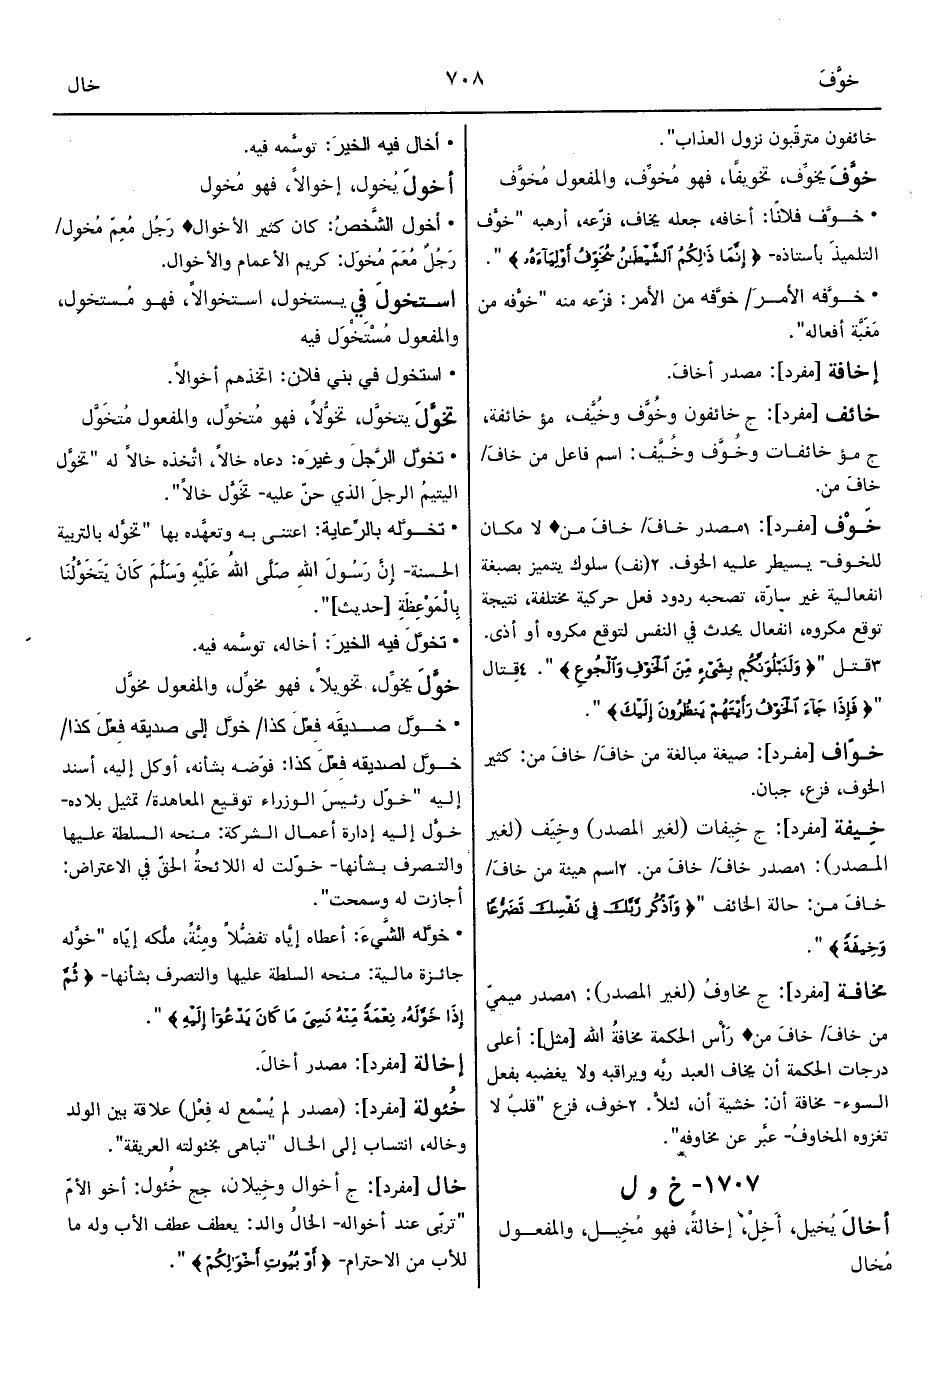 خوَّفَ
٧٠٨
خال
خائفون مترقّبون نزول العذاب".
خوَّفَ يخوِّف، تخويفًا، فهو مُخوِّف، والمفعول مُخوَّف
• خـوَّف فلانًا: أخافه، جعله يخاف، فزّعه، أرهبه "خوَّف
التلميذَ بأستاذه- ﴿ إِنَّمَا ذَٰلِكُمُ ٱلشَّيْطَٰنُ يُخَوِّفُ أَوْلِيَآءَهُۥ ﴾ ".
• خـوَّفه الأمـرَ/ خوَّفه من الأمر: فزّعه منه "خوّفه من
مَغَبَّة أفعاله".
إخافة [مفرد]: مصدر أخافَ.
خائف [مفرد]: ج خائفون وخُوَّف وخُيَّف، مؤ خائفة،
ج مؤ خائفات وخُوَّف وخُيَّف: اسم فاعل من خافَ/
خافَ من.
خَوْف [مفرد]: ١مصدر خافَ/ خافَ من♦ لا مكان
للخوف- يسيطر عليه الخوف. ٢(نف) سلوك يتميز بصبغة
انفعالية غير سارّة، تصحبه ردود فعل حركية مختلفة، نتيجة
توقع مكروه، انفعال يحدث في النفس لتوقع مكروه أو أذى.
٣قـتل "﴿ وَلَنَبْلُوَنَّكُم بِشَىْءٍ مِّنَ ٱلْخَوْفِ وَٱلْجُوعِ ﴾ ". ٤قـتال
"﴿ فَإِذَا جَآءَ ٱلْخَوْفُ رَأَيْتَهُمْ يَنظُرُونَ إِلَيْكَ ﴾ ".
خـوّاف [مفرد]: صيغة مبالغة من خافَ/ خافَ من: كثير
الخوف، فزع، جبان.
خِيفة [مفرد]: ج خِيفات (لغير المصدر) وخِيَف (لغير
المصدر): ١مصدر خافَ/ خافَ من. ٢اسم هيئة من خافَ/
خافَ من: حالة الخائف "﴿ وَٱذْكُر رَّبَّكَ فِى نَفْسِكَ تَضَرُّعًا
وَخِيفَةً ﴾ ".
مخافة [مفرد]: ج مخاوفُ (لغير المصدر): ١مصدر ميميّ
من خافَ/ خافَ من♦ رَأْس الحكمة مخافةُ الله [مثل]: أعلى
درجات الحكمة أن يخاف العبد ربَّه ويراقبه ولا يغضبه بفعل
السوء- مخافة أن: خشية أن، لئلاّ. ٢خوف، فزع "قلبٌ لا
تغزوه المخاوفُ- عبَّر عن مخاوفه".
١٧٠٧- خ و ل
أخالَ يُخيل، أَخِلْ، إخالةً، فهو مُخِيل، والمفعول
مُخال
• أخال فيه الخيرَ: توسَّمه فيه.
أخولَ يُخوِل، إخوالاً، فهو مُخوِل
• أخول الشَّخصُ: كان كثير الأخوال♦ رَجُل مُعِمّ مُخوِل/
رَجُلٌ مُعَمّ مُخوَل: كريم الأعمام والأخوال.
استخولَ في يستخول، استخوالاً، فهو مُستخوِل،
والمفعول مُسْتَخْوَل فيه
• استخول في بني فلان: اتخذهم أخوالاً.
تخوَّلَ يتخوَّل، تخوُّلاً، فهو مُتخوِّل، والمفعول مُتخوَّل
• تخوّل الرَّجلَ وغيرَه: دعاه خالاً، اتّخذه خالاً له "تخوَّل
اليتيمُ الرجلَ الذي حنّ عليه- تَخوَّل خالاً".
• تخـوَّله بالرِّعاية: اعتنى به وتعهَّده بها "تخوَّله بالتربية
الحسنة- إِنَّ رَسُولَ اللهِ صَلَّى اللهُ عَلَيْهِ وَسَلَّمَ كَانَ يَتَخَوَّلُنَا
بِالْمَوْعِظَةِ [حديث]".
• تخوّل فيه الخيرَ: أخاله، توسَّمه فيه.
خوَّلَ يخوِّل، تخويلاً، فهو مخوِّل، والمفعول مخوَّل
• خـوّل صـديقَه فعلَ كذا/ خوّل إلى صديقه فعلَ كذا/
خـوّل لصديقه فعلَ كذا: فوّضه بشأنه، أوكل إليه، أسند
إليه "خوّل رئيسَ الوزراء توقيع المعاهدة/ تمثيل بلاده-
خوَّل إليه إدارة أعمال الشركة: منحه السلطة عليها
والتصرف بشأنها- خـوّلت له اللائحةُ الحقّ في الاعتراض:
أجازت له وسمحت".
• خوَّله الشَّيءَ: أعطاه إيَّاه تفضُّلاً ومِنَّةً، ملّكه إيّاه "خوَّله
جائزة مالية: منحه السلطة عليها والتصرف بشأنها- ﴿ ثُمَّ
إِذَا خَوَّلَهُۥ نِعْمَةً مِّنْهُ نَسِىَ مَا كَانَ يَدْعُوٓا۟ إِلَيْهِ ﴾ ".
إخالة [مفرد]: مصدر أخالَ.
خُئولة [مفرد]: (مصدر لم يُسْمع له فِعْل) علاقة بين الولد
وخاله، انتساب إلى الخال "تباهى بخئولته العريقة".
خال [مفرد]: ج أخوال وخِيلان، جج خُئول: أخو الأمّ
"تربّى عند أخواله- الخالُ والد: يعطف عطف الأب وله ما
للأب من الاحترام- ﴿ أَوْ بُيُوتِ أَخْوَٰلِكُمْ ﴾ ".